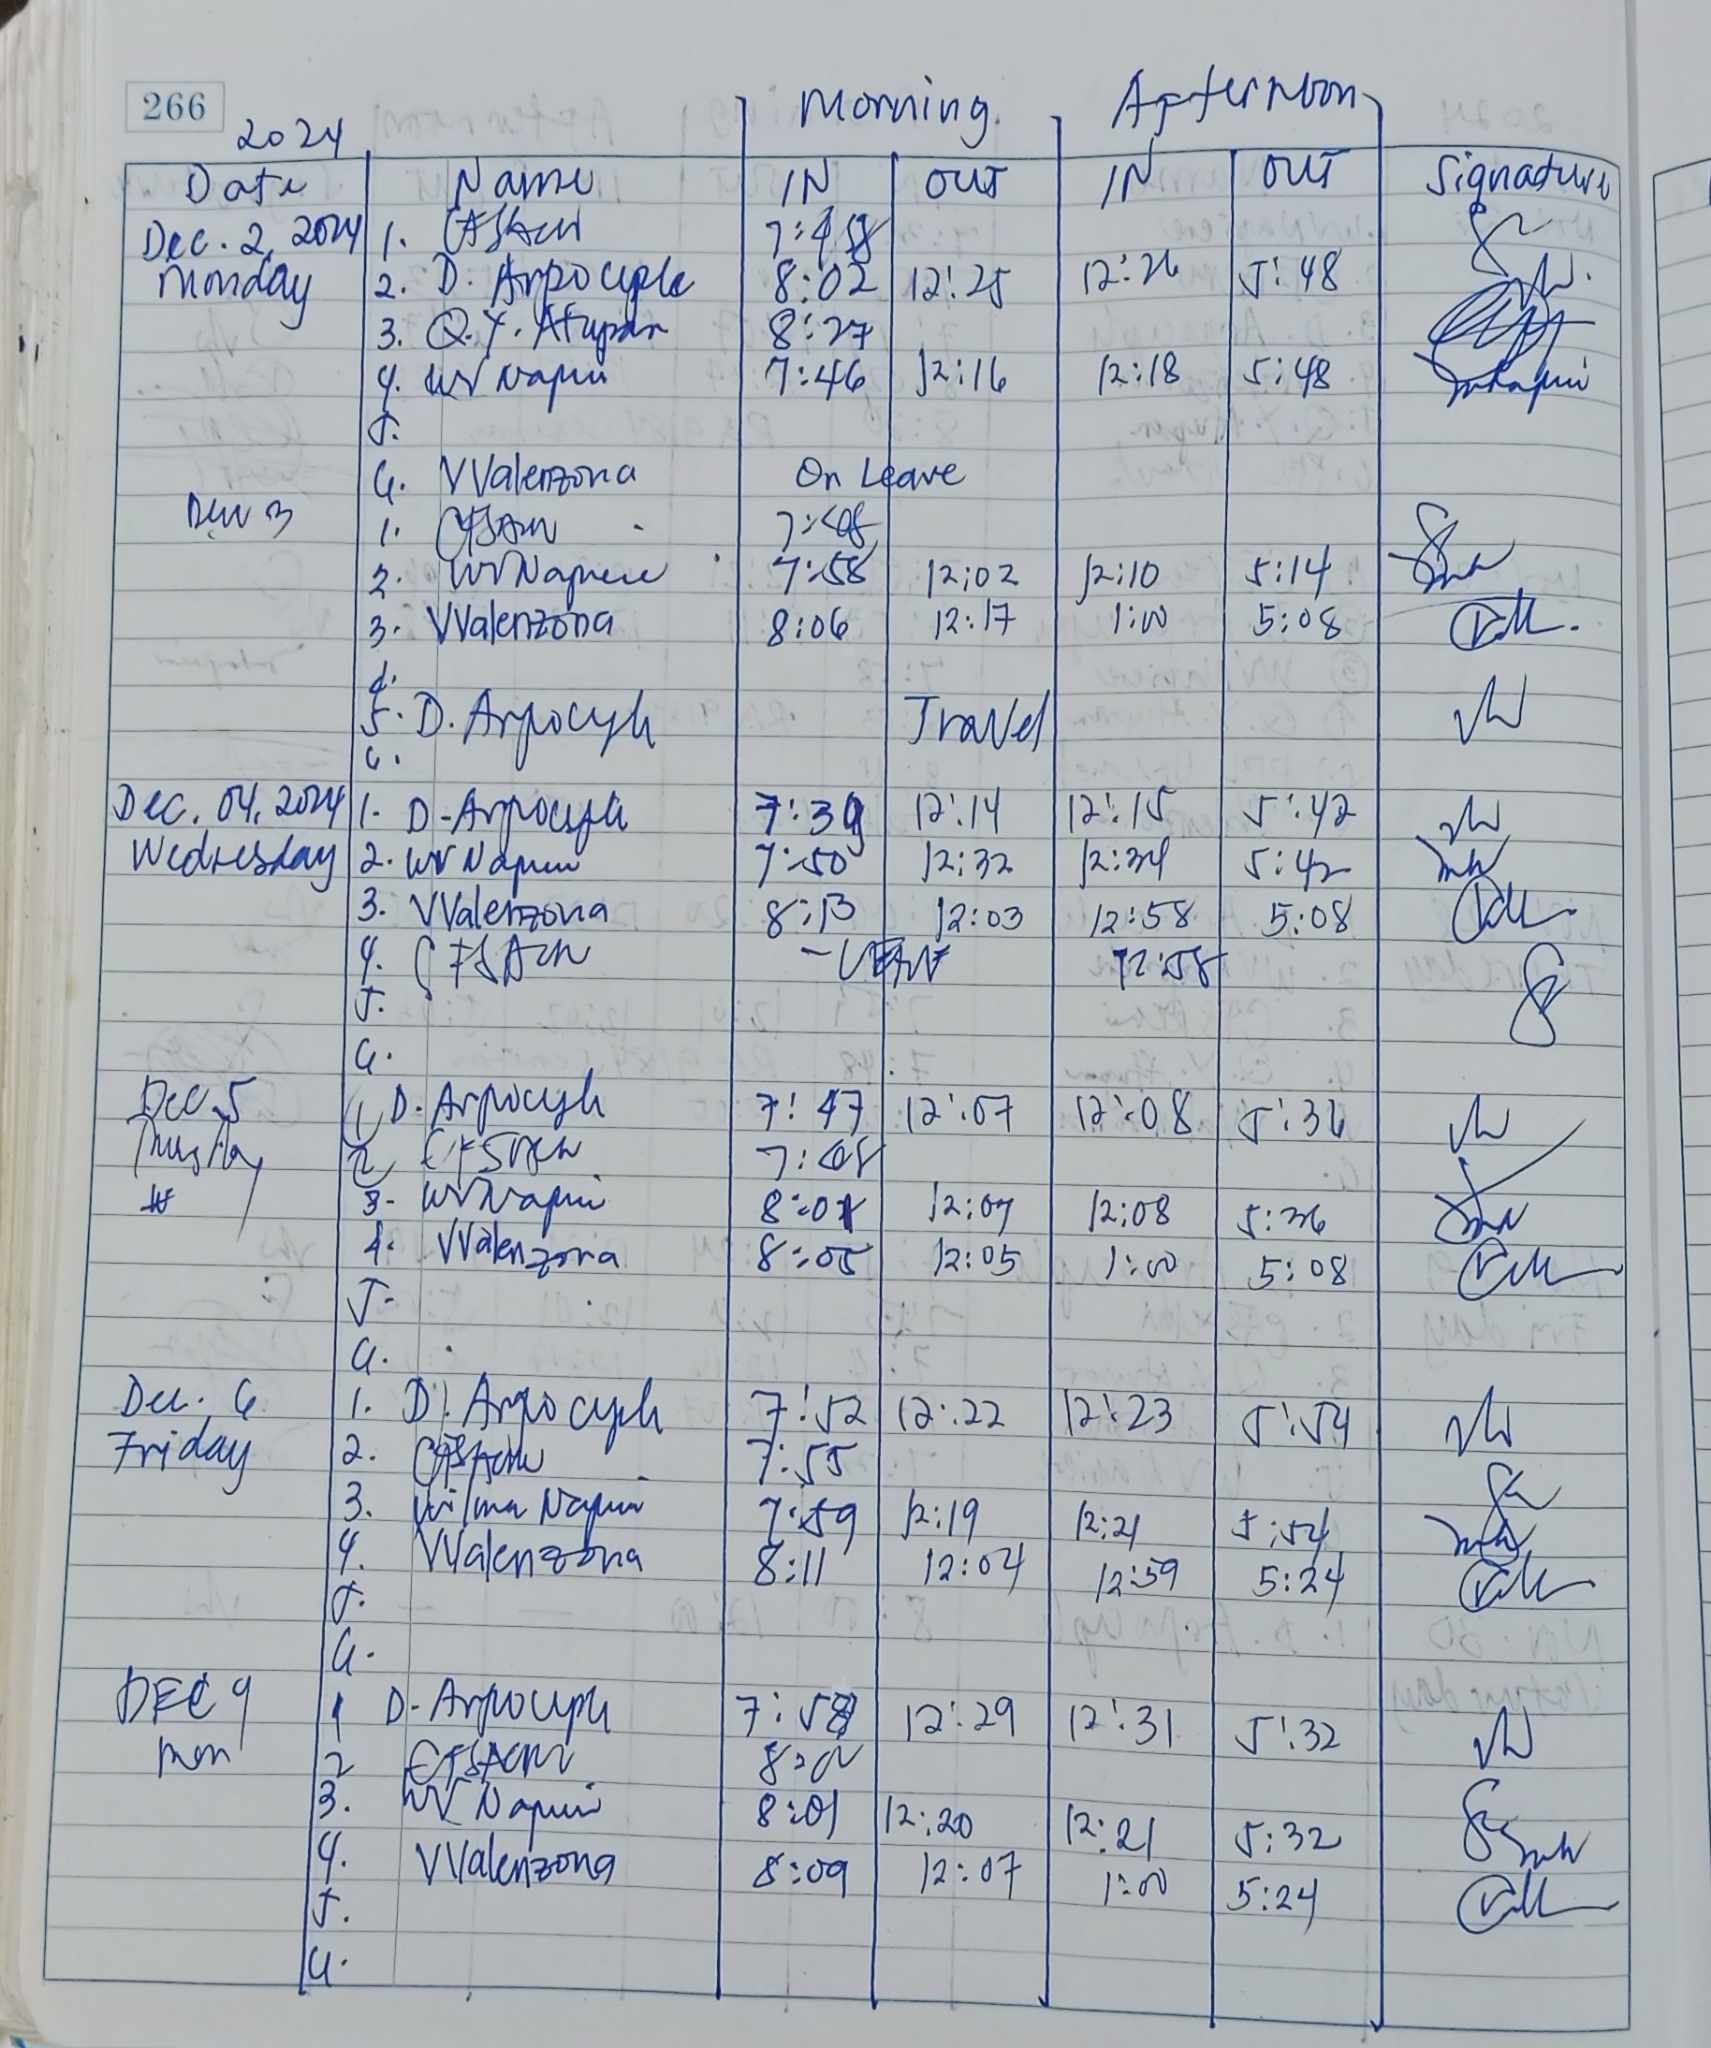 266
2024 Morning Afternoon
Date Name IN OUT IN OUT Signature
Dec. 2, 2024 1.
Monday 2. D. 8:02 12:25 12:26 5:48
3. Q.Y. 8:27
4. WV 7:46 12:16 12:18 5:48
5.
6. VValenzona On Leave
3 1.
2. WV 7:58 12:02 12:10 5:14
3. VValenzona 8:06 12:17 1:00 5:08
4.
5. D. Travel
6.
Dec. 04, 2024 1. D. 7:39 12:14 12:15 5:42
Wednesday 2. WV 7:50 12:32 12:34 5:42
3. VValenzona 8:13 12:03 12:58 5:08
4. 12:58
5.
6.
Dec 5 1 D. 7:47 12:07 12:08 5:36
2
3. WV 12:07 12:08 5:36
4. VValenzona 8:05 12:05 1:00 5:08
5.
6.
Dec. 6 1. D. 7:52 12:22 12:23 5:54
Friday 2. 7:55
3. Wilma 7:59 12:19 12:21 5:54
4. VValenzona 8:11 12:04 12:59 5:24
5.
6.
DEC 9 1 D. 7:58 12:29 12:31 5:32
mon 2
3. WV 8:01 12:20 12:21 5:32
4. VValenzona 8:09 12:07 1:00 5:24
5.
6.